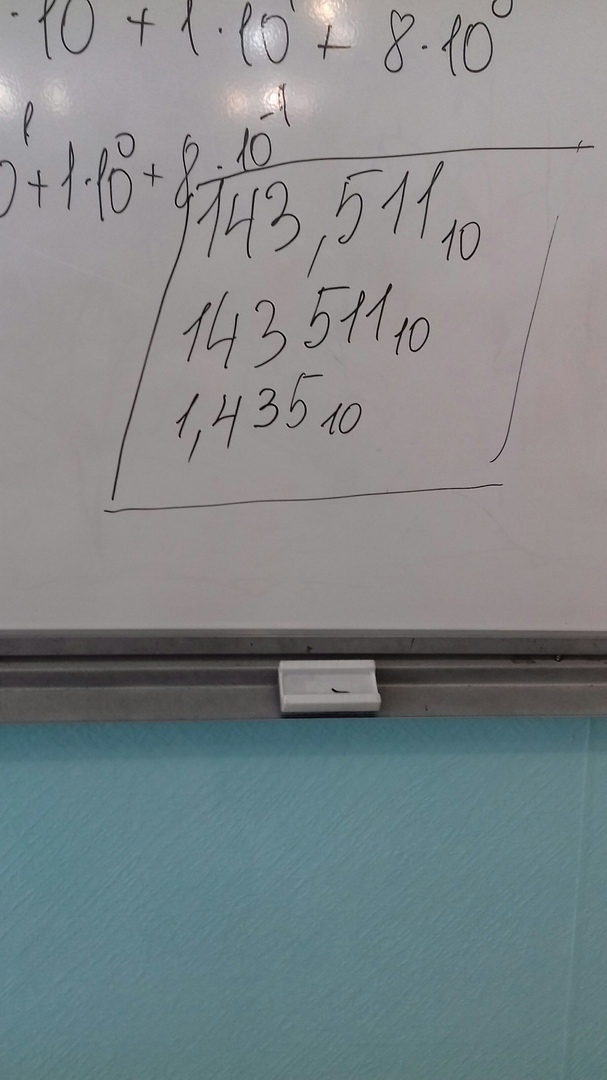 · 10 + 1 · 10¹ + 8 · 10⁰
0¹ + 1 · 10⁰ + 8 · 10⁻¹
143,511₁₀
143511₁₀
1,435₁₀